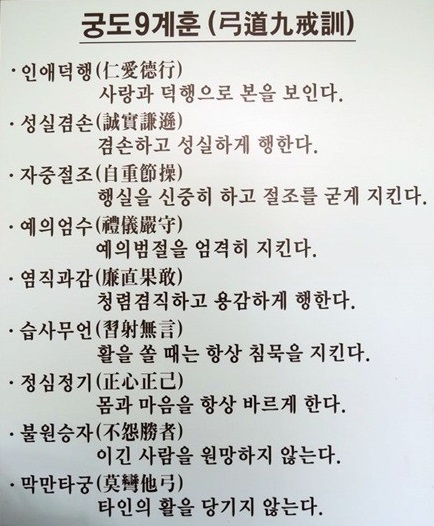 궁도9계훈(弓道九戒訓)
·인애덕행(仁愛德行)
사랑과 덕행으로 본을 보인다.
·성실겸손(誠實謙遜)
겸손하고 성실하게 행한다.
·자중절조(自重節操)
행실을 신중히 하고 절조를 굳게 지킨다.
·예의엄수(禮儀嚴守)
예의범절을 엄격히 지킨다.
·염직과감(廉直果敢)
청렴겸직하고 용감하게 행한다.
·습사무언(習射無言)
활을 쏠 때는 항상 침묵을 지킨다.
·정심정기(正心正己)
몸과 마음을 항상 바르게 한다.
·불원승자(不怨勝者)
이긴 사람을 원망하지 않는다.
·막만타궁(莫彎他弓)
타인의 활을 당기지 않는다.